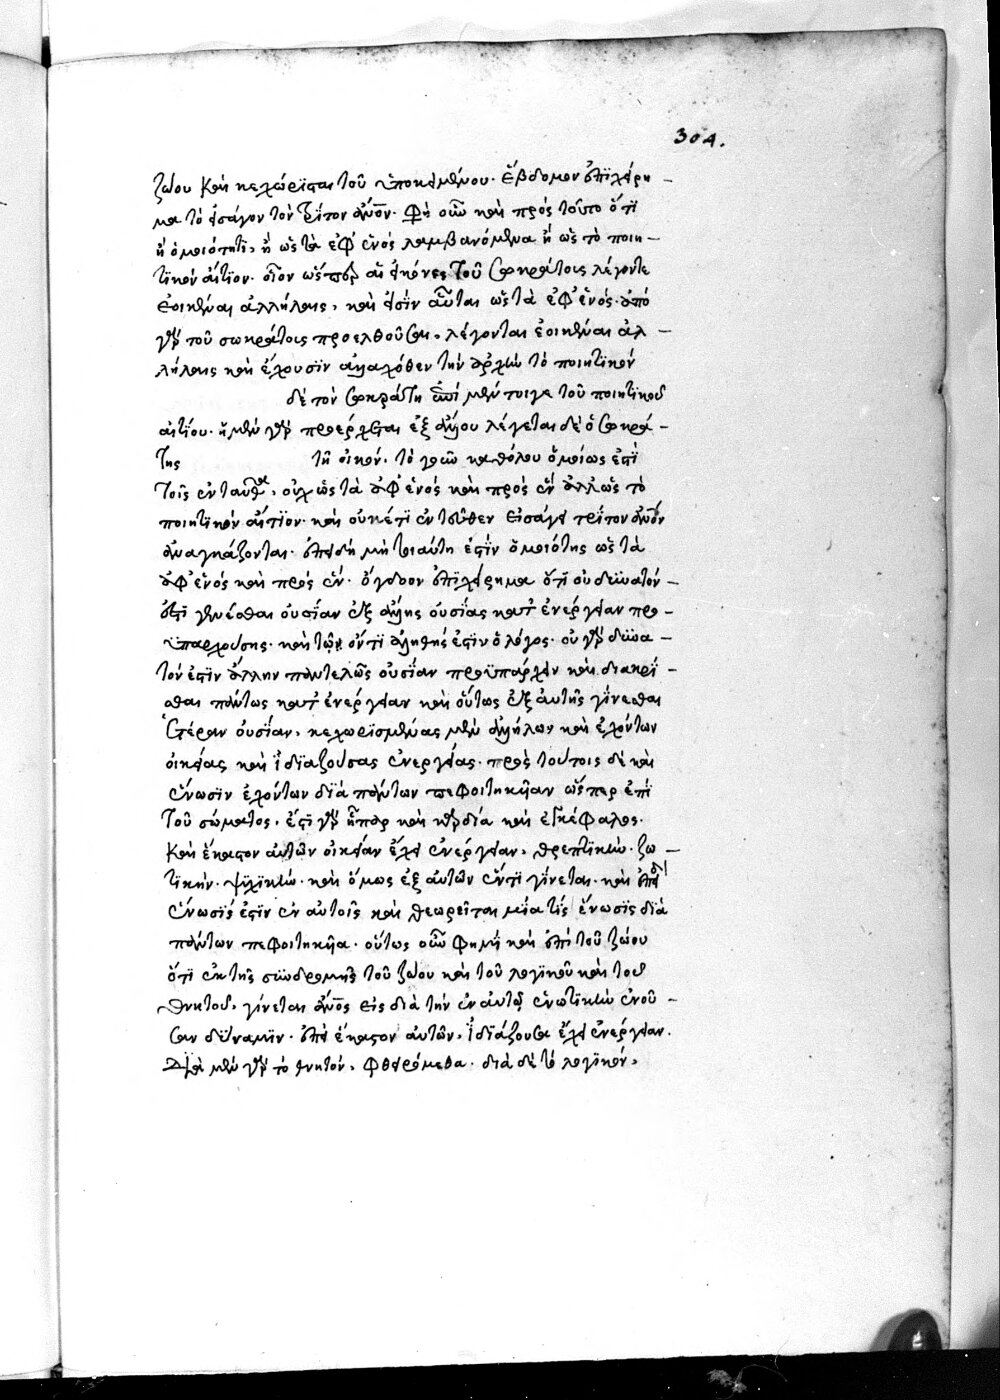 304.
ζώου καὶ κεχώρισται τοῦ ὑποκειμένου. ἕβδομον ἐπιχείρη –
μα τὸ εἰσάγον τὸν τρίτον ἄνθρωπον. Φησὶ οὖν καὶ πρὸς τοῦτο ὅτι
ἢ ὁμοιότητι, ἢ ὡς τὰ ἐφ' ἑνὸς λαμβανόμενα ἢ ὡς τὸ ποιη –
τικὸν αἴτιον. οἷον ὥσπερ αἱ εἰκόνες τοῦ Σωκράτους λέγονται
ἐοικέναι ἀλλήλαις, καὶ εἰσὶν αὗται ὡς τὰ ἐφ' ἑνός. ἀπὸ
γὰρ τοῦ σωκράτους προελθοῦσαι, λέγονται ἐοικέναι ἀλ –
λήλαις καὶ ἔχουσιν ἀναλόγως τὴν ἀρχὴν τὸ ποιητικόν
δὲ τὸν Σωκράτη ἐπὶ μέντοιγε τοῦ ποιητικοῦ
αἰτίου. ἡ μὲν γὰρ προέρχεται ἐξ λέγεται δὲ ὁ Σωκρά –
της τῇ οἰκον. τὸ γοῦν καθόλου ὁμοίως ἐπὶ
τοῖς ἐνταῦθα, οὐχ ὡς τὰ ἀφ' ἑνὸς καὶ πρὸς ἓν ἀλλ' ὡς τὸ
ποιητικὸν αἴτιον. καὶ οὐκέτι ἐντεῦθεν εἰσάγειν τρίτον ἄνθρωπον
ἀναγκάζονται. ἐπειδὴ μὴ τοιαύτη ἐστὶν ὁμοιότης ὡς τὰ
ἀφ' ἑνὸς καὶ πρὸς ἕν. ὄγδοον ἐπιχείρημα ὅτι οὐ δυνατόν –
ἐστι γενέσθαι οὐσίαν ἐξ ἄλλης οὐσίας κατ' ἐνέργειαν προ –
ϋπαρχούσης. καὶ τῷ ὄντι ἀληθής ἐστιν ὁ λόγος. οὐ γὰρ δυνα –
τόν ἐστιν ἄλλην παντελῶς οὐσίαν προϋπάρχειν καὶ διακρί –
θαι πάντως κατ' ἐνέργειαν καὶ οὕτως ἐξ αὐτῆς γίνεσθαι
ἑτέραν οὐσίαν, κεχωρισμένας μὲν ἀλλήλων καὶ ἐχόντων
οἰκείας καὶ ἰδιαζούσας ἐνεργείας. πρὸς τούτοις δὲ καὶ
ἕνωσιν ἐχόντων διὰ πάντων πεφοιτηκῖαν ὥσπερ ἐπὶ
τοῦ σώματος. ἔστι γὰρ ἧπαρ καὶ καρδία καὶ ἐγκέφαλος.
καὶ ἕκαστον αὐτῶν οἰκείαν ἔχει ἐνέργειαν, θρεπτικὴν. ζω –
τικήν. ψυχικὴν. καὶ ὅμως ἐξ αὐτῶν ἕν τι γίνεται. καὶ
ἕνωσίς ἐστιν ἐν αὐτοῖς καὶ θεωρεῖται μία τὶς ἕνωσις διὰ
πάντων πεφοιτηκῖα. οὕτως οὖν φημὶ καὶ ἐπὶ τοῦ ζώου
ὅτι ἐκ τῆς συνδρομῆς τοῦ ζώου καὶ τοῦ λογικοῦ καὶ τοῦ
θνητοῦ, γίνεται ἄνθρωπος εἷς διὰ τὴν ἐν αὐτῷ ἑνωτικὴν ἑνοῦ –
σαν δύναμιν. ἐπεὶ ἕκαστον αὐτῶν, ἰδιάζουσαν ἔχει ἐνέργειαν.
Διὰ μὲν γὰρ τὸ θνητόν, φθειρόμεθα. διὰ δὲ τὸ λογικόν,